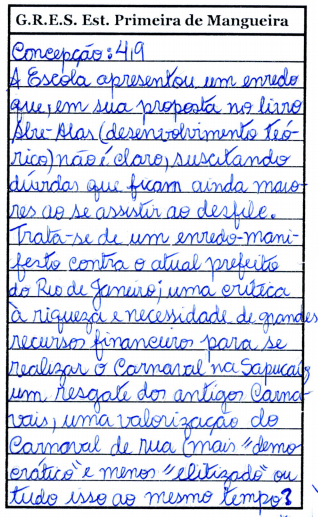 G.R.E.S. Est. Primeira de Mangueira
Concepção: 4,9
A Escola apresentou um enredo
que, em sua proposta no livro
Abre-Alas (desenvolvimento teó-
rico) não é claro, suscitando
dúvidas que ficam ainda maio-
res ao se assistir ao desfile.
Trata-se de um enredo-mani-
festo contra o atual prefeito
do Rio de Janeiro; uma crítica
à riqueza e necessidade de grandes
recursos financeiros para se
realizar o Carnaval na Sapucaí;
um resgate dos antigos Carna-
vais, uma valorização do
Carnaval de rua (mais "demo
crático" e menos "elitizado" ou
tudo isso ao mesmo tempo?